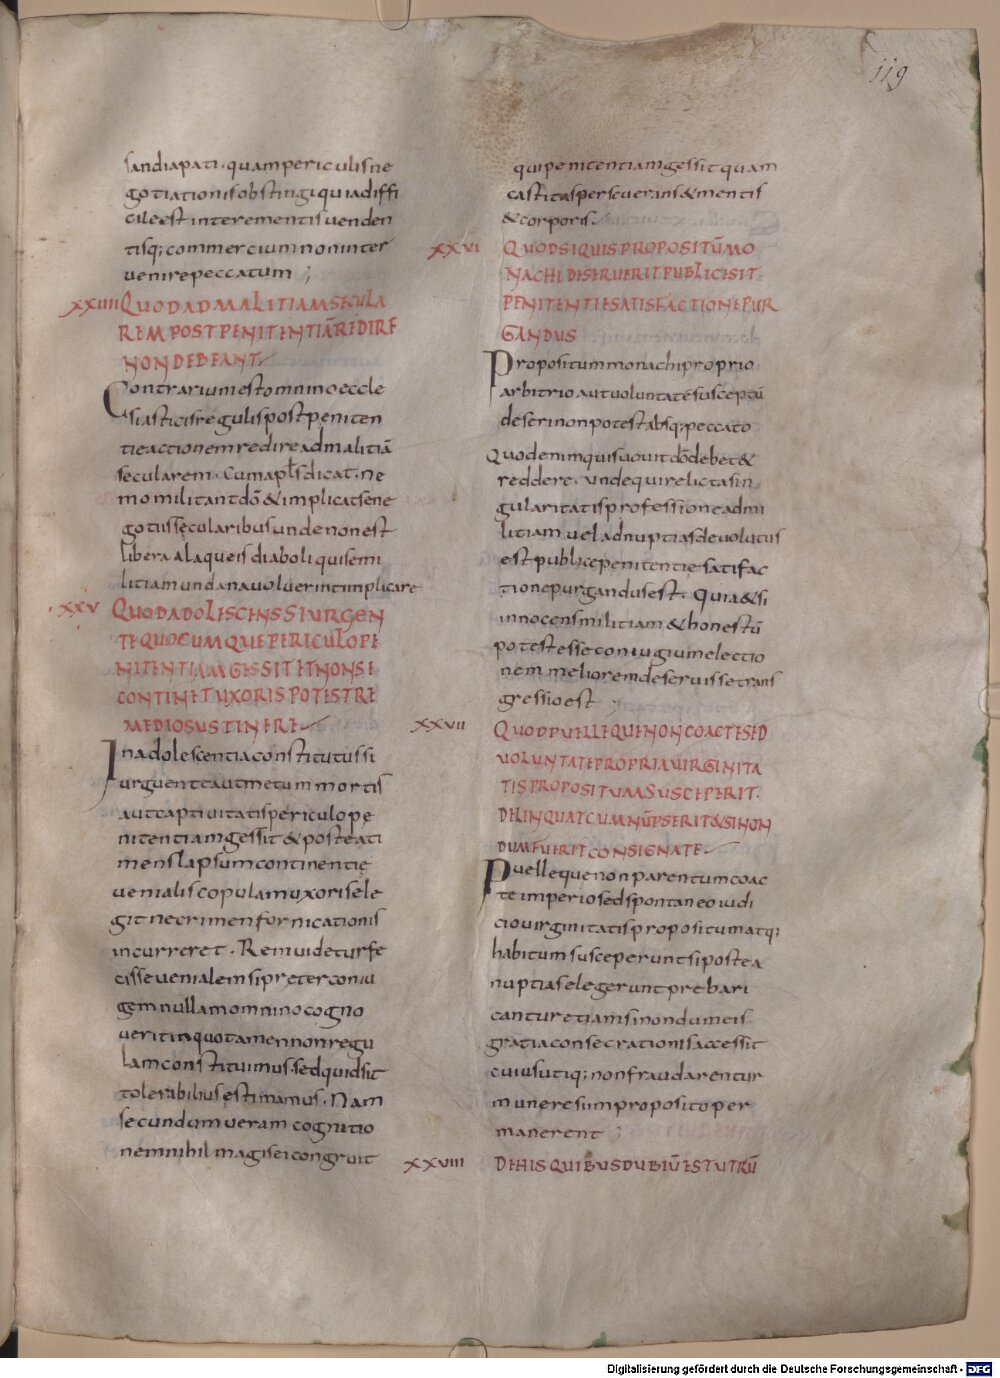 119
sandiapati. quampericulisne
gotiationisobstingi quiadiffi
cileestinterementisuenden
tisq; commerciumnoninter
uenirepeccatum ;
XXIIII QUODADMALITIAMSECULA
REMPOSTPENITENTIĀREDIRE
NONDEBEANT
Contrariumestomninoeccle
siasticisregulispostpeniten
tieactionemredireadmalitiā
secularem. Cumapłsdicat. ne
momilitantdō&implicatsene
gotiissęcularibusundenonest
libera alaqueisdiaboli quisemi
litiamundanauoluerintimplicare
.XXV QUODADOLESCENSSIURGEN
TEQUOCUMQUEPERICULOPE
NITENTIAMGESSITETNONSE
CONTINETUXORISPOTESTRE
MEDIOSUSTINERE
Inadolescentiaconstitutussi
urguenteautmetummortis
autcaptiuitatispericulope
nitentiamgessit&posteati
menslapsumcontinentię
uenialiscopulamuxorisele
gitnecrimenfornicationis
incurreret. Remuideturfe
cisseuenialemsipręterconiu
gemnullamomninocogno
ueritinquotamennonregu
lamconstituimus. sedquidsit
tolerabiliusęstimamus. Nam
secundumueram cognitio
nemnihilmagiseicongruit
quipenitentiamgessitquam
castitasperseuerans&mentis
&corporis.
XXVI QUODSIQUISPROPOSITŪMO
NACHIDESERUERITPUBLICESIT
PENITENTIESATISFACTIONEPUR
GANDUS
Propositummonachiproprio
arbitrioautuoluntatēsusceptū
deserinonpotestabsq; peccato
Quodenimquisuouitdōdebet&
reddere. undequirelictasin
gularitatisprofessioneadmi
litiam ueladnuptiasdeuolutus
estpublicępenitentięsatifac
tionepurgandusest. Quia&si
innocensmilitiam&honestū
potestesseconiugiumelectio
nemmelioremdeseruissetrans
gressioest ;
XXVII QUODPUELLEQUENONCOACTESED
UOLUNTATEPROPRIAUIRGINITA
TISPROPOSITUMSUSCEPERIT.
DELINQUATCUMNŪPSERIT&SINON
DUMFUERITCONSIGNATE
Puellequenonparentumcoac
teimperiosedspontaneoiudi
ciouirginitatispropositumatqi
habitumsusceperuntsipostea
nuptiaselegeruntprebari
canturetiamsinondumeis
gratiaconsecrationisaccessit
cuiusutiq; nonfraudarentur
muneresiinpropositoper
manerent ;
XXVIII DEHISQUIBUSDUBIŪESTUTRŪ
Digitalisierung gefördert durch die Deutsche Forschungsgemeinschaft - DFG